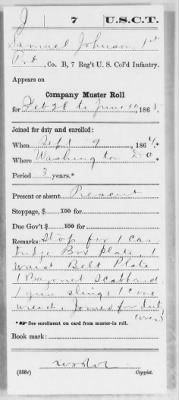 J | 7 | U.S.C.T.
Samuel Johnson, 1st
Pvt, Co. B, 7 Reg't U. S. Col'd Infantry.
Appears on
Company Muster Roll
for Feb 28 to June 30, 186
Joined for duty and enrolled:
When Sept 9, 186
Where Washington D.C.
Period 3 years.*
Present or absent Present
Stoppage, $ 100 for
Due Gov't $ 100 for
Remarks: Stop for 1 Car-
tridge Box Plate, 1
Waist Belt Plate
1 Bayonet Scabbard
1 gun sling, 1 cone
wrench. Joined for duty
*See enrollment on card from muster-in roll.
Book mark:
(358c) Copyist.